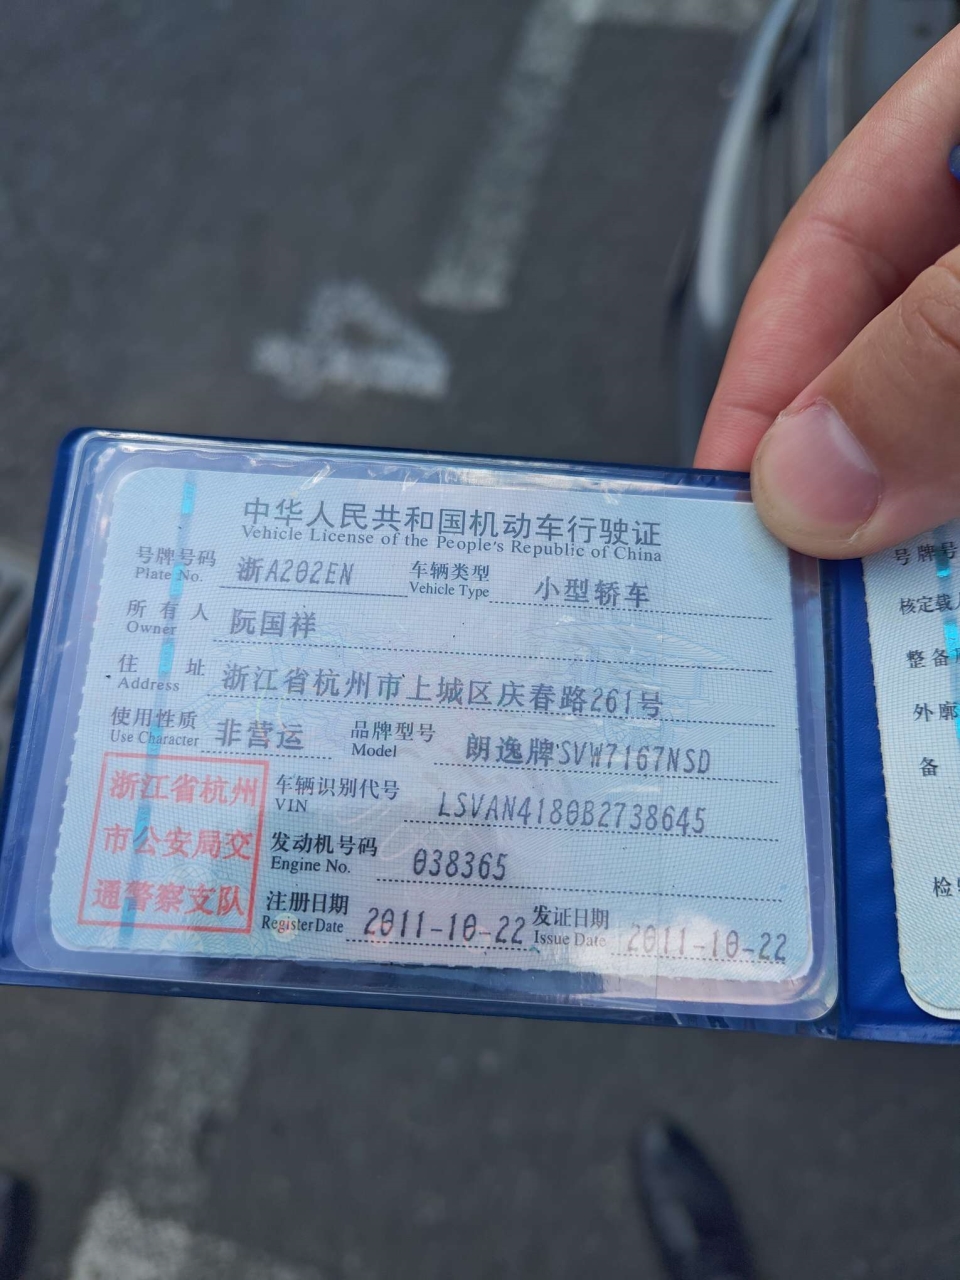 中华人民共和国机动车行驶证
Vehicle License of the People's Republic of China
号牌号码 浙A202EN 车辆类型 小型轿车
Plate No. Vehicle Type
所有人 阮国祥
Owner
住址 浙江省杭州市上城区庆春路261号
Address
使用性质 非营运 品牌型号 朗逸牌SVW7167NSD
Use Character Model
浙江省杭州
市公安局交
通警察支队
车辆识别代号 LSVAN4180B2738645
VIN
发动机号码 038365
Engine No.
注册日期 2011-10-22 发证日期 2011-10-22
Register Date Issue Date
号牌号
核定载
整备
外廓
备
检
4